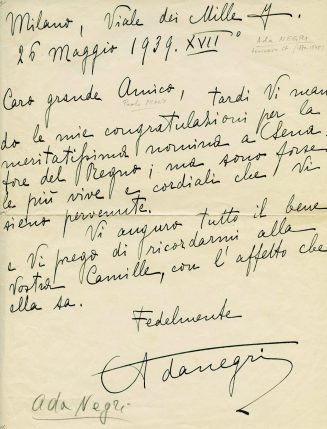 Milano, Viale dei Mille 7.
26 Maggio 1939. XVII°
Ada NEGRI
Caro grande Amico, tardi Vi man
do le mie congratulazioni per la
meritatissima nomina a Sena
tore del Regno; ma sono forse
le più vive e cordiali che Vi
sieno pervenute.
Vi auguro tutto il bene
e Vi prego di ricordarmi alla
Vostra Camille, con l'affetto che
ella sa.
Fedelmente
Adanegri
Ada Negri